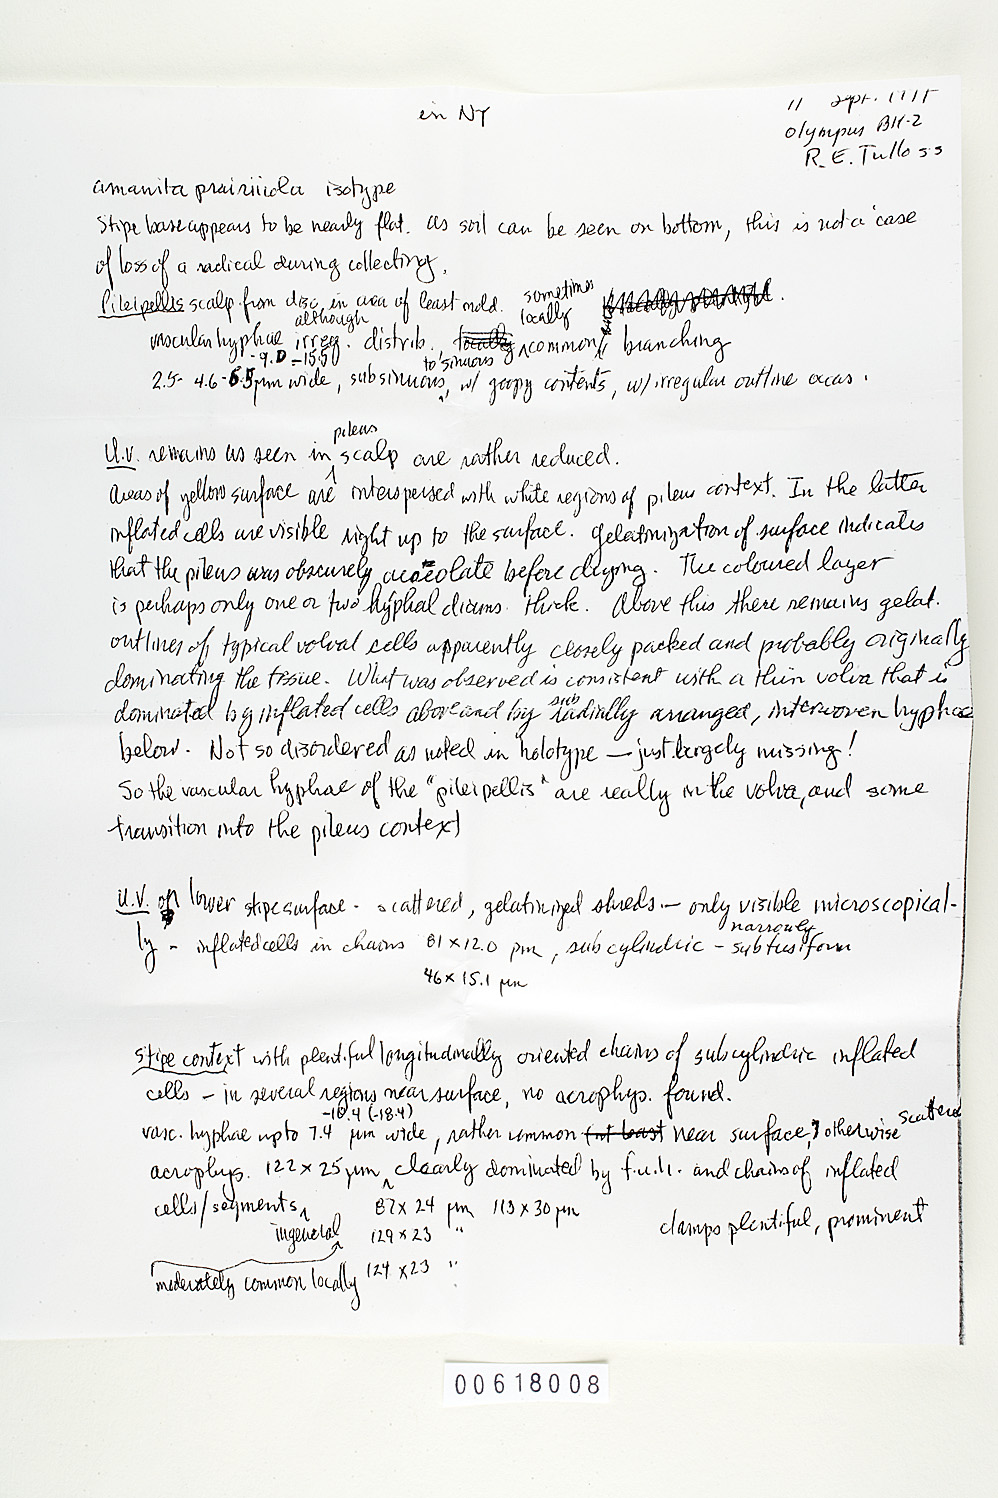 in NY
11 Sept.
Olympus BH-2
R. E. Tulloss
Amanita prairiicola isotype
Stipe base appears to be nearly flat. As soil can be seen on bottom, this is not a case
of loss of a radical during collecting.
Pileipellis scalp from disc in area of least mold. sometimes
although locally
vascular hyphae irreg. distrib. locally common, branching
-9.0 -15.5 to sinuous
2.5- 4.6-6.5 µm wide, subsinuous, w/ goopy contents, w/ irregular outline occas.
pileus
U.V. remains as seen in scalp are rather reduced.
Areas of yellow surface are interspersed with white regions of pileus context. In the latter
inflated cells are visible right up to the surface. Gelatinization of surface indicates
that the pileus was obscurely areolate before drying. The coloured layer
is perhaps only one or two hyphal diams. thick. Above this there remains gelat.
outlines of typical volval cells apparently closely packed and probably originally
dominating the tissue. What was observed is consistent with a thin volva that is
sub
dominated by inflated cells above and by radially arranged, interwoven hyphae
below. Not so disordered as noted in holotype — just largely missing!
So the vascular hyphae of the "pileipellis" are really in the volva, and some
transition into the pileus context
U.V. on lower stipe surface - scattered, gelatinized shreds — only visible microscopical-
narrowly
ly - inflated cells in chains 81 x 12.0 µm, subcylindric - subfusiform
46 x 15.1 µm
Stipe context with plentiful longitudinally oriented chains of subcylindric inflated
cells - in several regions near surface, no acrophys. found.
-10.4 (-18.4) scattered
vasc. hyphae up to 7.4 µm wide, rather common (at least near surface; otherwise
acrophys. 122 x 25 µm, clearly dominated by f.u.h. and chains of inflated
cells/segments 87 x 24 µm 113 x 30 µm
in general 129 x 23 " clamps plentiful, prominent
moderately common locally 124 x 23 "
00618008